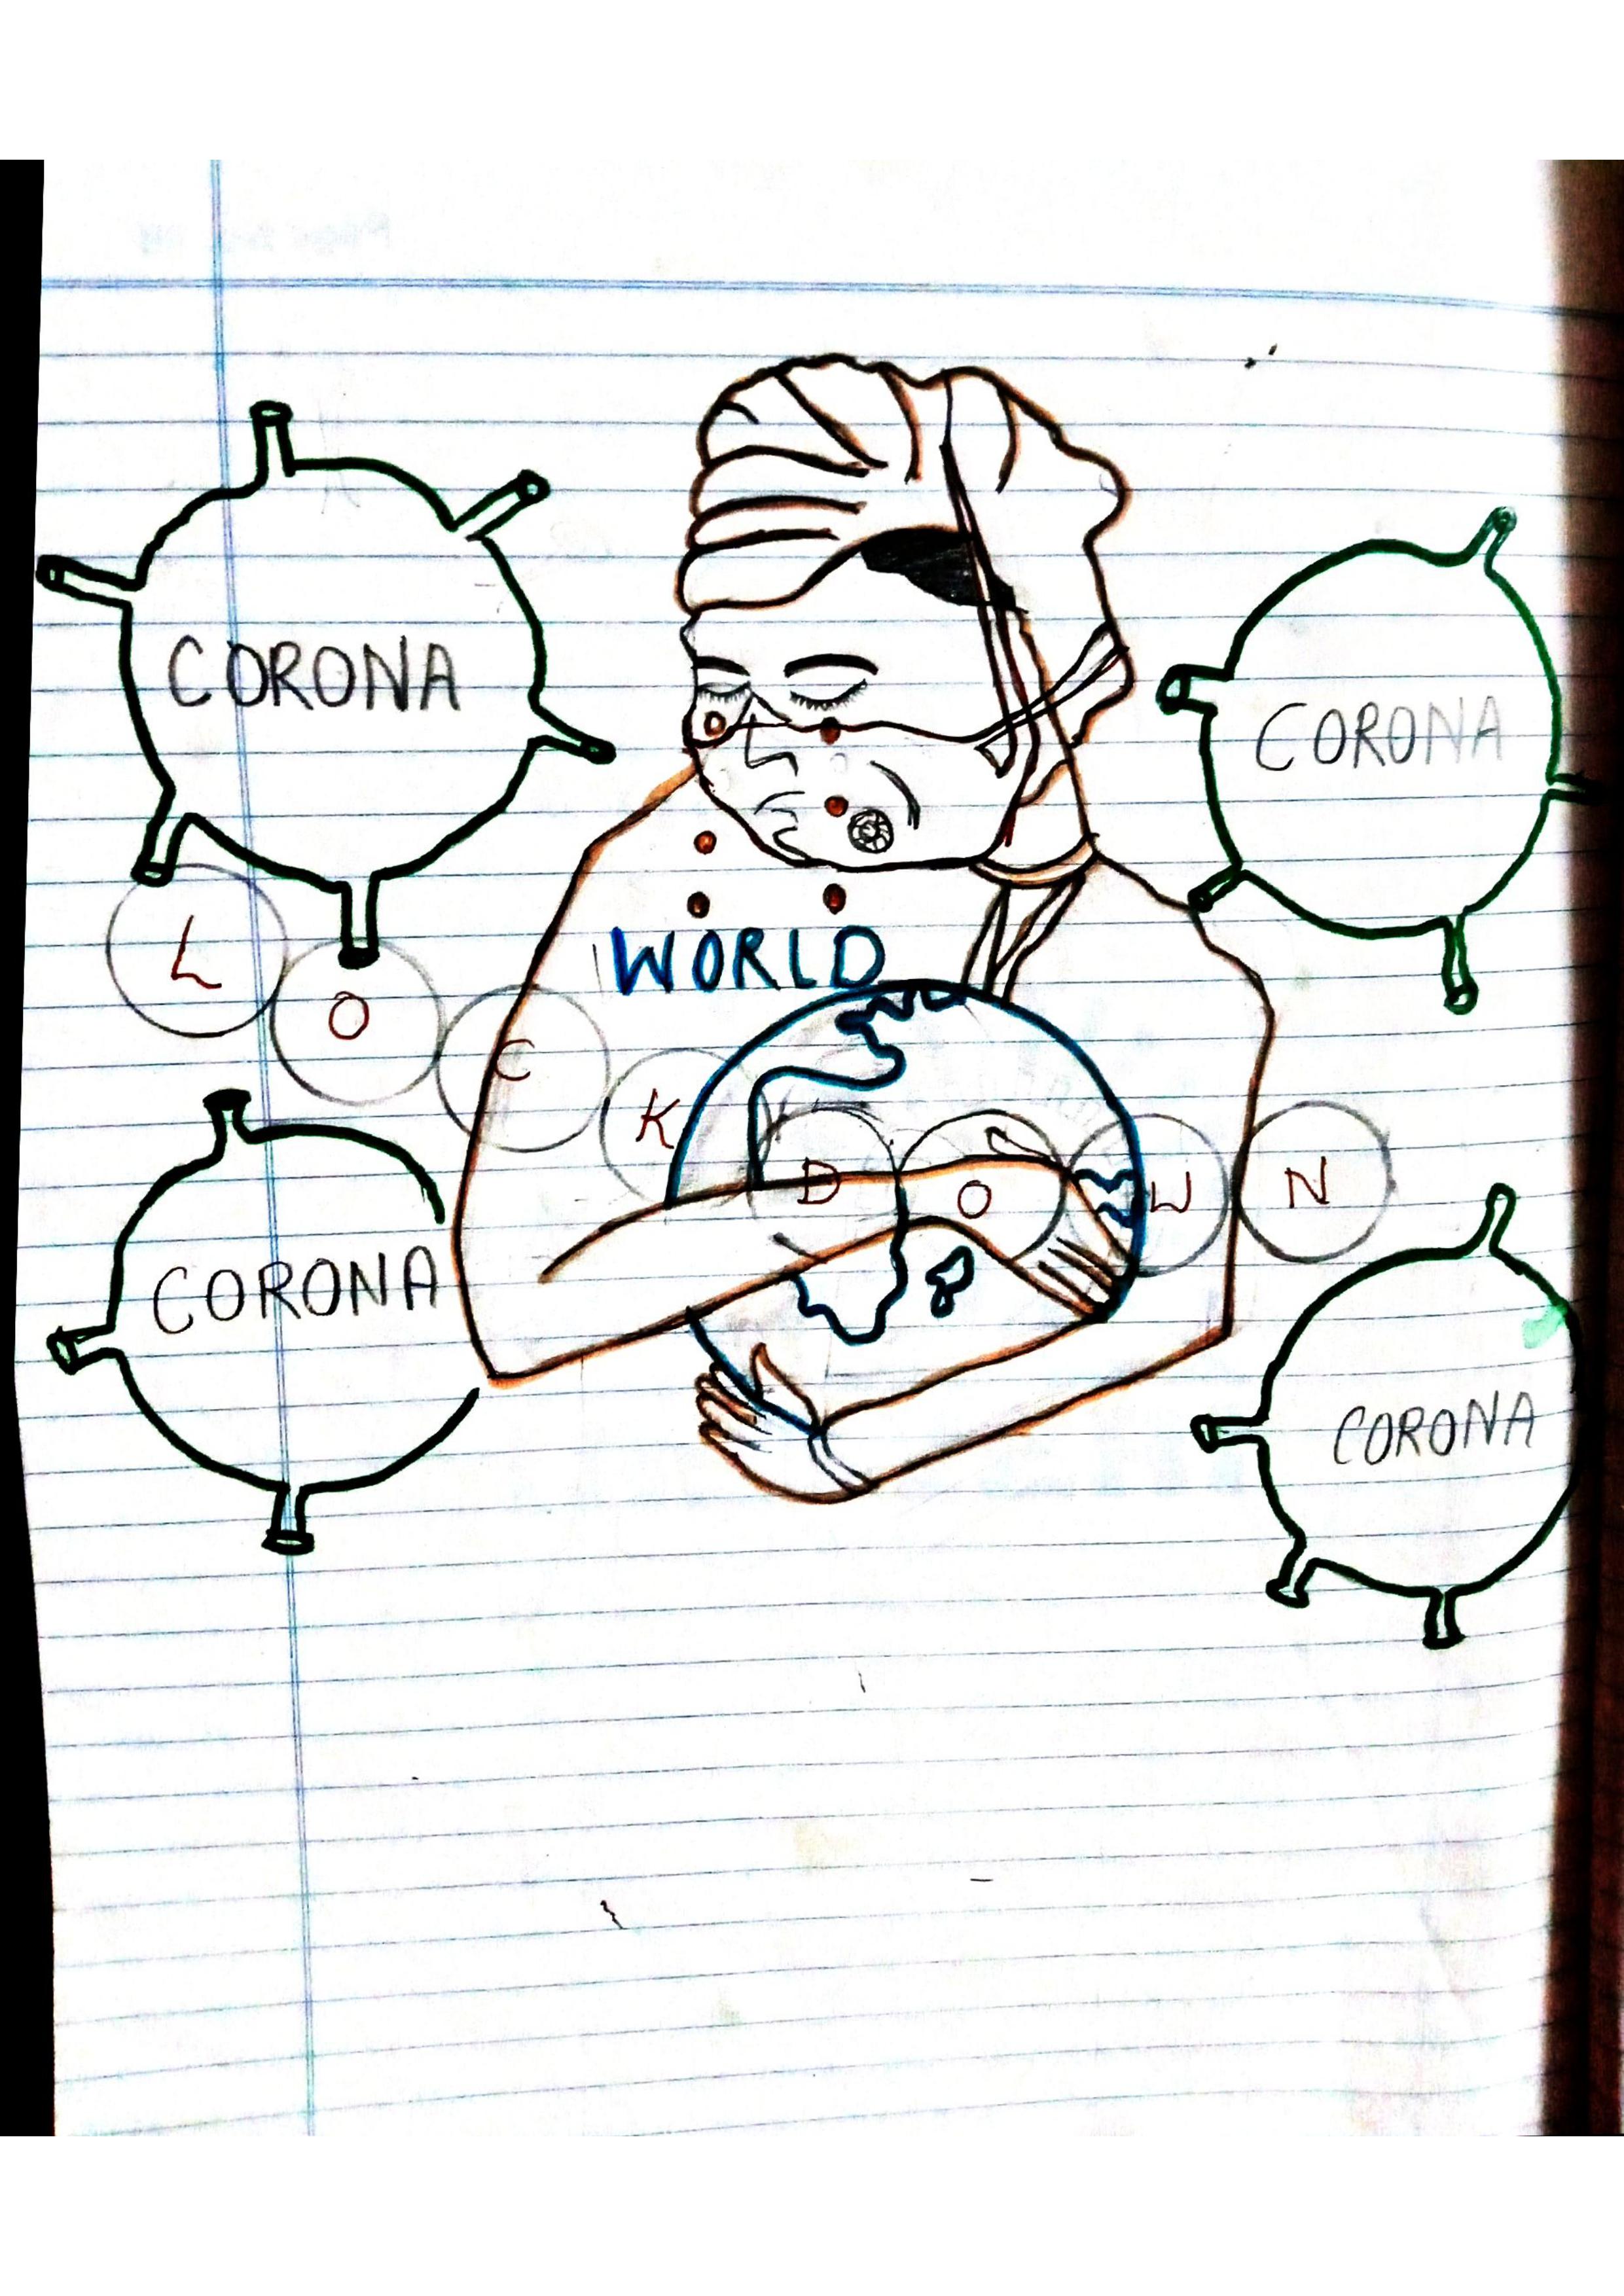 CORONA
CORONA
WORLD
LOCKDOWN
CORONA
CORONA